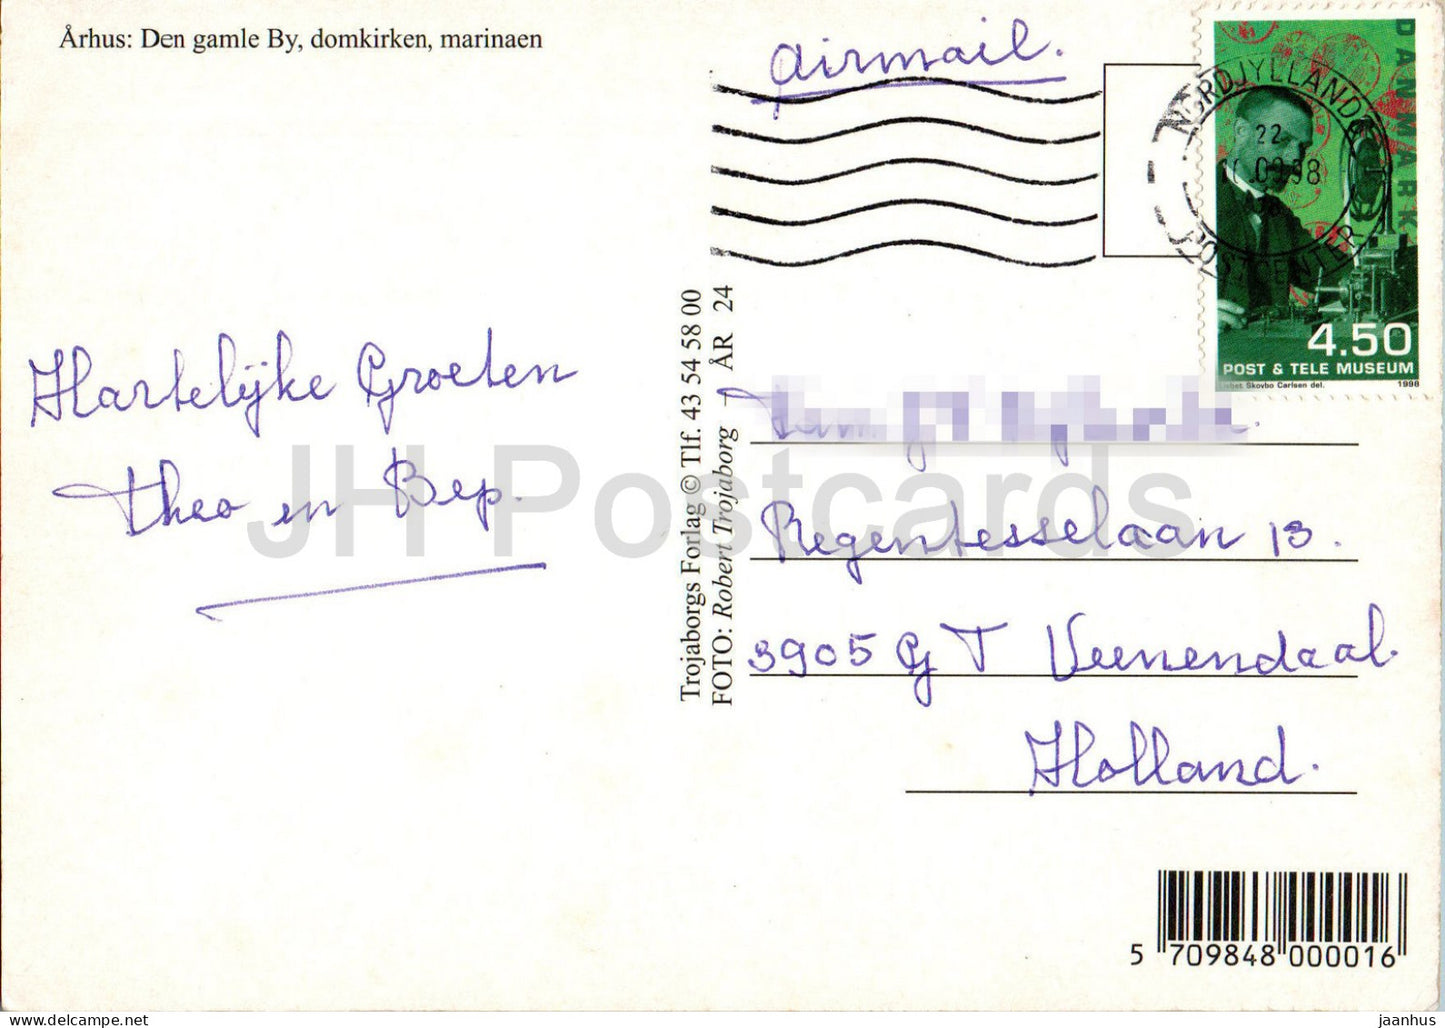 Århus: Den gamle By, domkirken, marinaen
airmail.
DANMARK
NORDJYLLANDS
22
POSTCENTER
4.50
POST & TELE MUSEUM
Lisbet Skovbo Carlsen del. 1998
Hartelijke Groeten
Theo en Bep.
Trojaborgs Forlag © Tlf. 43 54 58 00
FOTO: Robert Trojaborg - ÅR 24
Regentesselaan 13.
3905 GT Veenendaal.
Holland.
JH Postcards
5 709848 000016
jaanhus